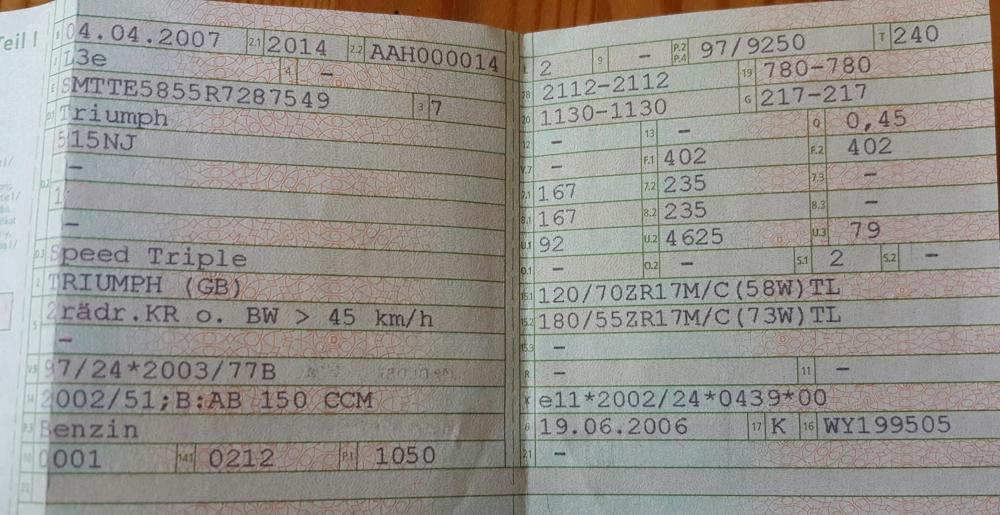 Teil I
B 04.04.2007 2.1 2014 2.2 AAH000014
J L3e 4 –
E SMTTE5855R7287549 3 7
D.1 Triumph
515NJ
–
D.2 1
–
D.3 Speed Triple
2 TRIUMPH (GB)
5 2rädr.KR o. BW > 45 km/h
–
V.9 97/24*2003/77B
14 2002/51;B:AB 150 CCM
P.3 Benzin
10 0001 14.1 0212 P.1 1050
22
L 2 9 – P.2 P.4 97/9250 T 240
18 2112-2112 19 780-780
20 1130-1130 G 217-217
12 – 13 – Q 0,45
V.7 – F.1 402 F.2 402
7.1 167 7.2 235 7.3 –
8.1 167 8.2 235 8.3 –
U.1 92 U.2 4625 U.3 79
O.1 – O.2 – S.1 2 S.2 –
15.1 120/70ZR17M/C(58W)TL
15.2 180/55ZR17M/C(73W)TL
15.3 –
R – 11 –
K e11*2002/24*0439*00
6 19.06.2006 17 K 16 WY199505
21 –